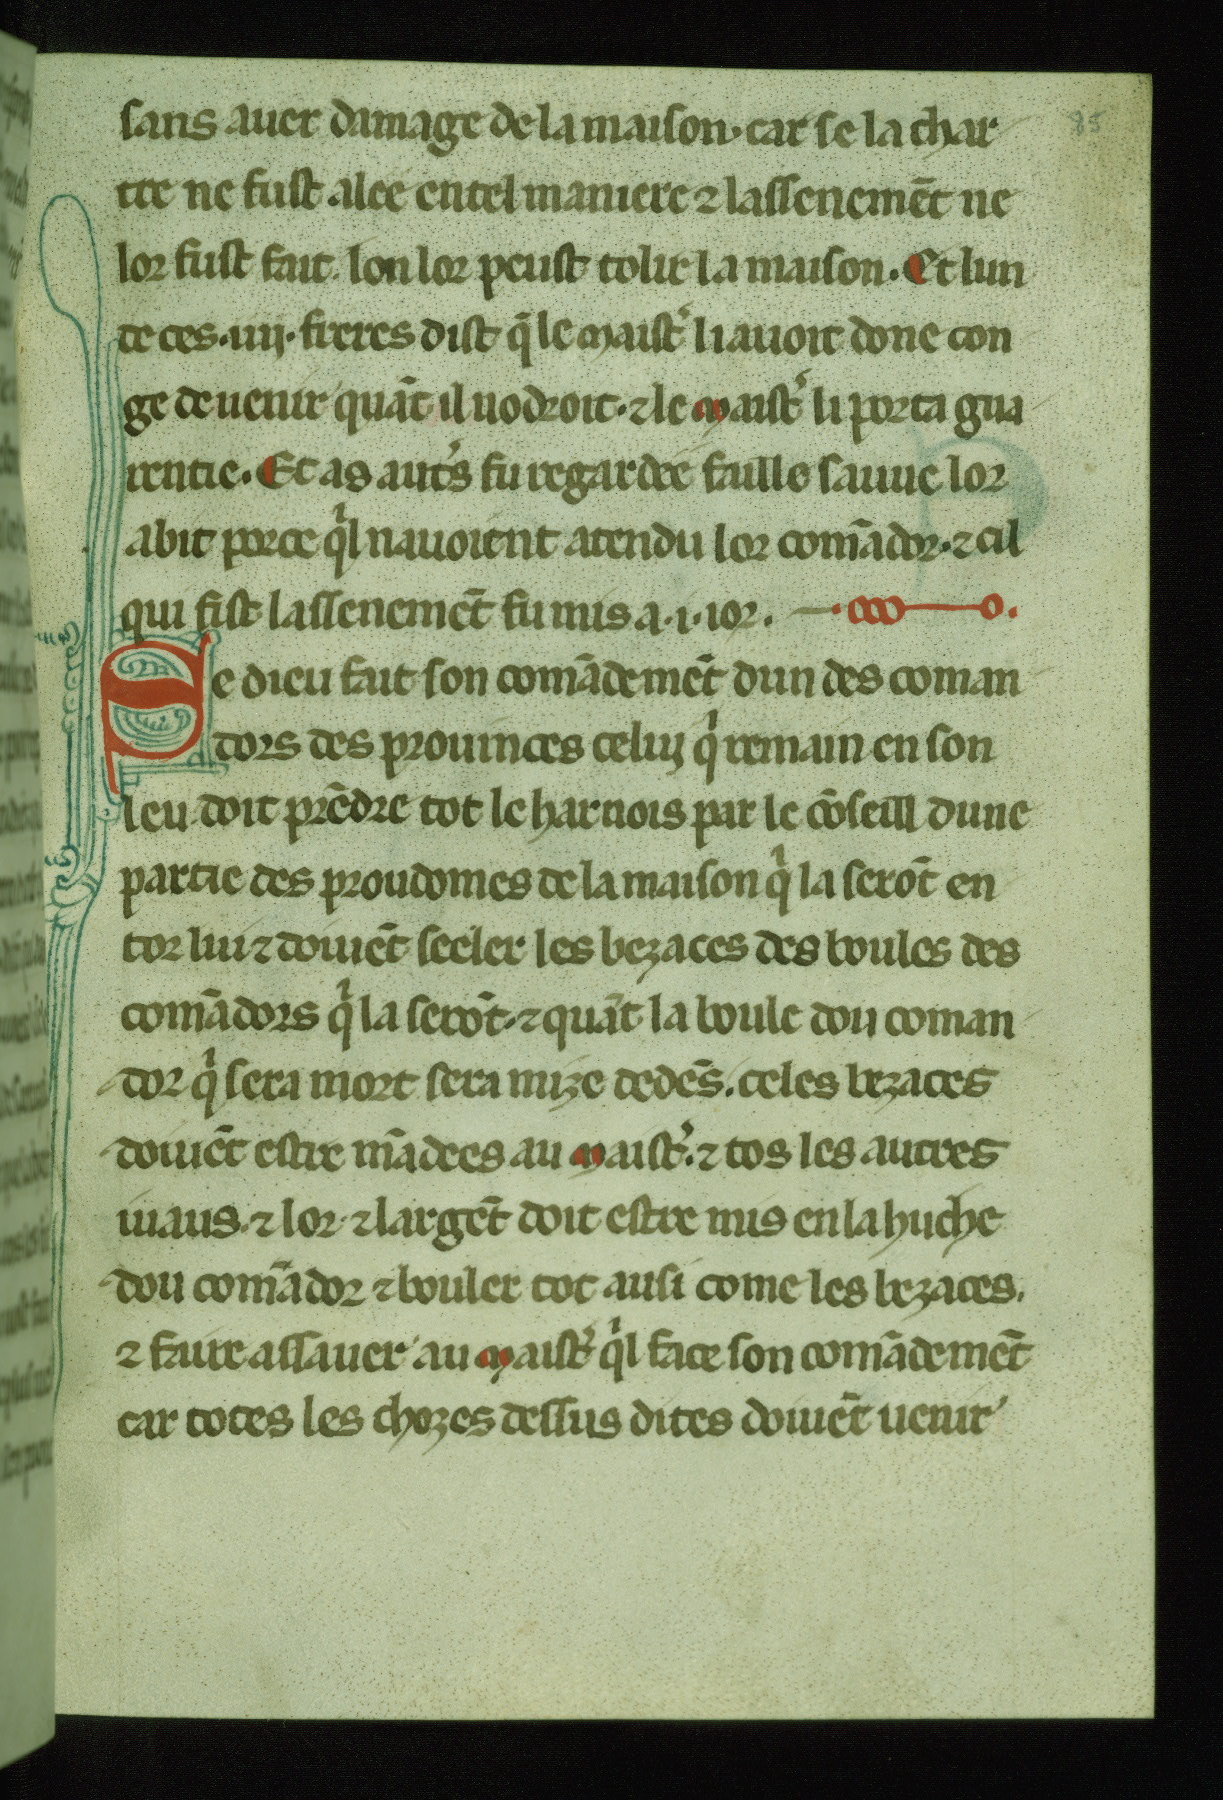 85
sans auer damage de la maison. car se la char
tre ne fust alee en tel maniere ⁊ lassenemēt ne
lor fust fait. lon lor peust tolir la maison. Et lun
de ces .iiij. freres dist q̄ le maist᾿ li auoit done con
ge de uenir quāt il uodroit. ⁊ le maist᾿ li porta gua
rentie. Et as aut᾿s fu regardee faille sauue lor
abit porce qͥl nauoient atendu lor comādor. ⁊ cil
qui fist lassenemēt fu mis a .i. ior.
Se dieu fait son comādemēt dun des coman
dors des prouinces celui qͥ remain en son
leu doit prēdre tot le harnois par le cōseill dune
partie des proudomes de la maison qͥ la serōt en
tor lui ⁊ doiuēt seeler les bezaces des boules des
comādors qͥ la serōt. ⁊ quāt la boule dou coman
dor qͥ sera mort sera mize dedēs. celes bezaces
doiuēt estre mādees au maist᾿. ⁊ tos les autres
iuaus. ⁊ lor. ⁊ largēt doit estre mis en la huche
dou comādor ⁊ bouler tot ausi come les bezaces.
⁊ faire assauer au maist᾿ qͥl face son comādemēt
car totes les chozes dessus dites doiuēt uenir